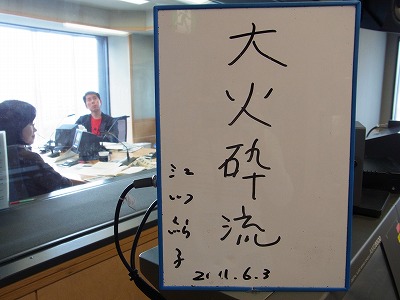 大火砕流
江川紹子
2011.6.3